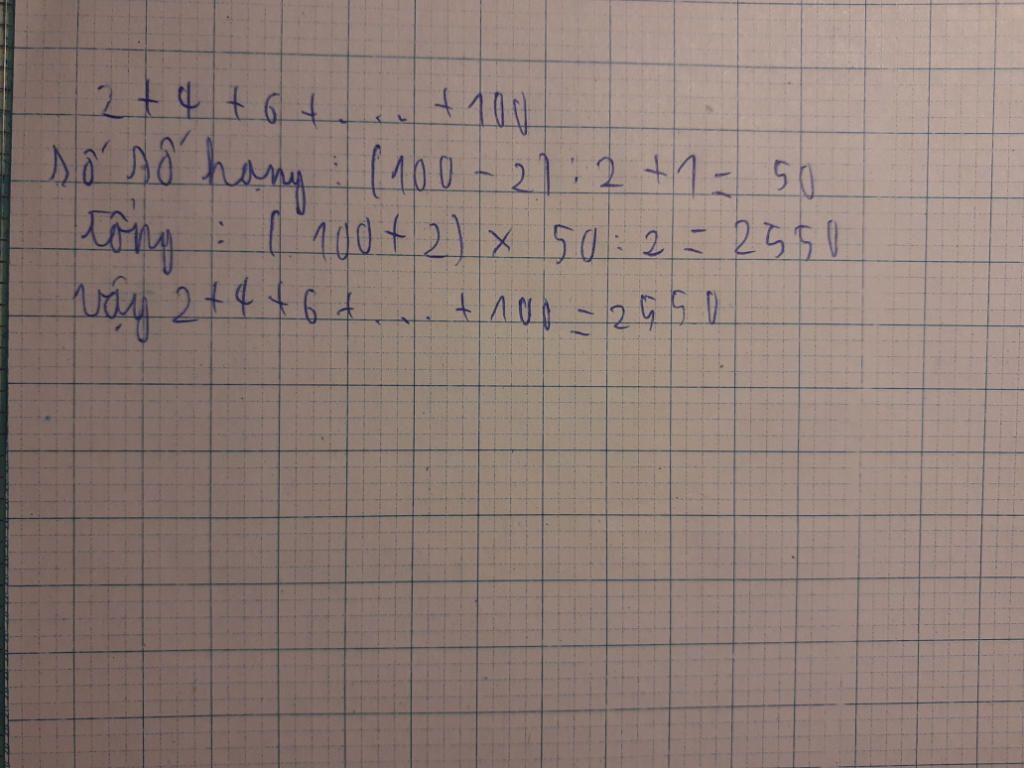 2 + 4 + 6 + .... + 100
số số hạng : (100 - 2) : 2 + 1 = 50
tổng : (100 + 2) × 50 : 2 = 2550
vậy 2 + 4 + 6 + .... + 100 = 2550